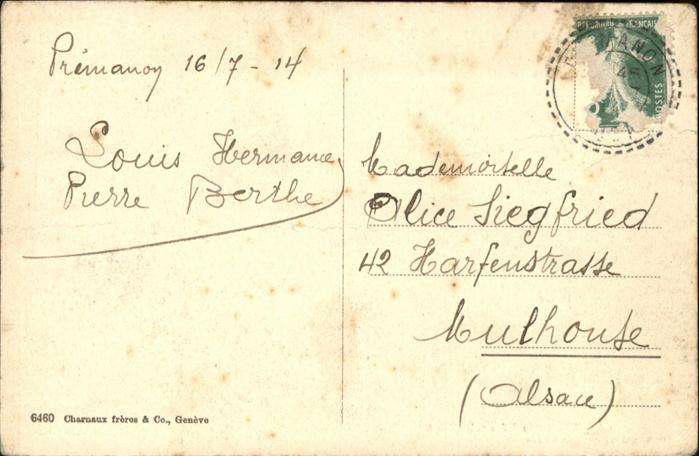 Prémanon 16/7 - 14
Louis Hermance
Pierre Berthe
Mademoiselle
Alice Siegfried
42 Harfenstrasse
Mulhouse
(Alsace)
6460 Charnaux frères & Co., Genève
FRANÇAIS
POSTES